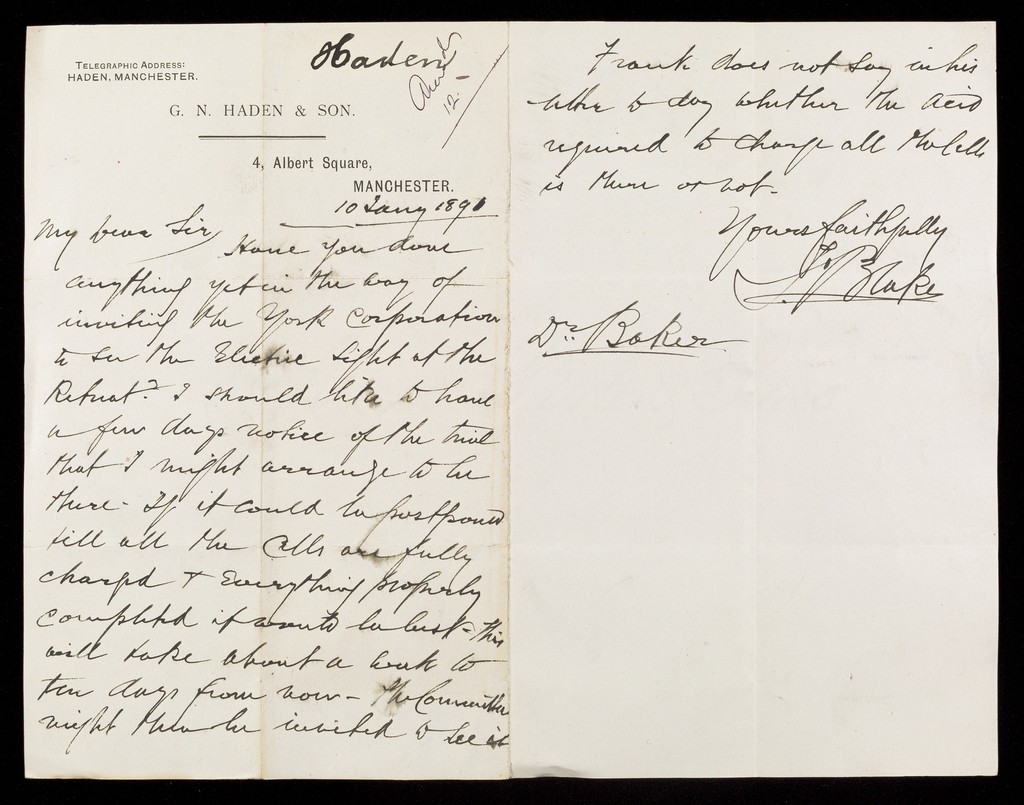 TELEGRAPHIC ADDRESS:
HADEN, MANCHESTER.
Haden
12.-
G. N. HADEN & SON.
4, Albert Square,
MANCHESTER.
10 Jany 1891
My dear Sir,
Have you done
anything yet in the way of
inviting the York Corporation
to see the Electric Light at the
Retreat? I should like to have
a few days notice of the trial
that I might arrange to be
there - If it could be postponed
till all the Cells are fully
charged & Everything properly
completed it would be best - this
will take about a week to
ten days from now - The Committee
might then be invited to see it
Frank does not say in his
letter to day whether the acid
required to charge all the Cells
is there or not -
Yours faithfully
Blake
Dr. Baker